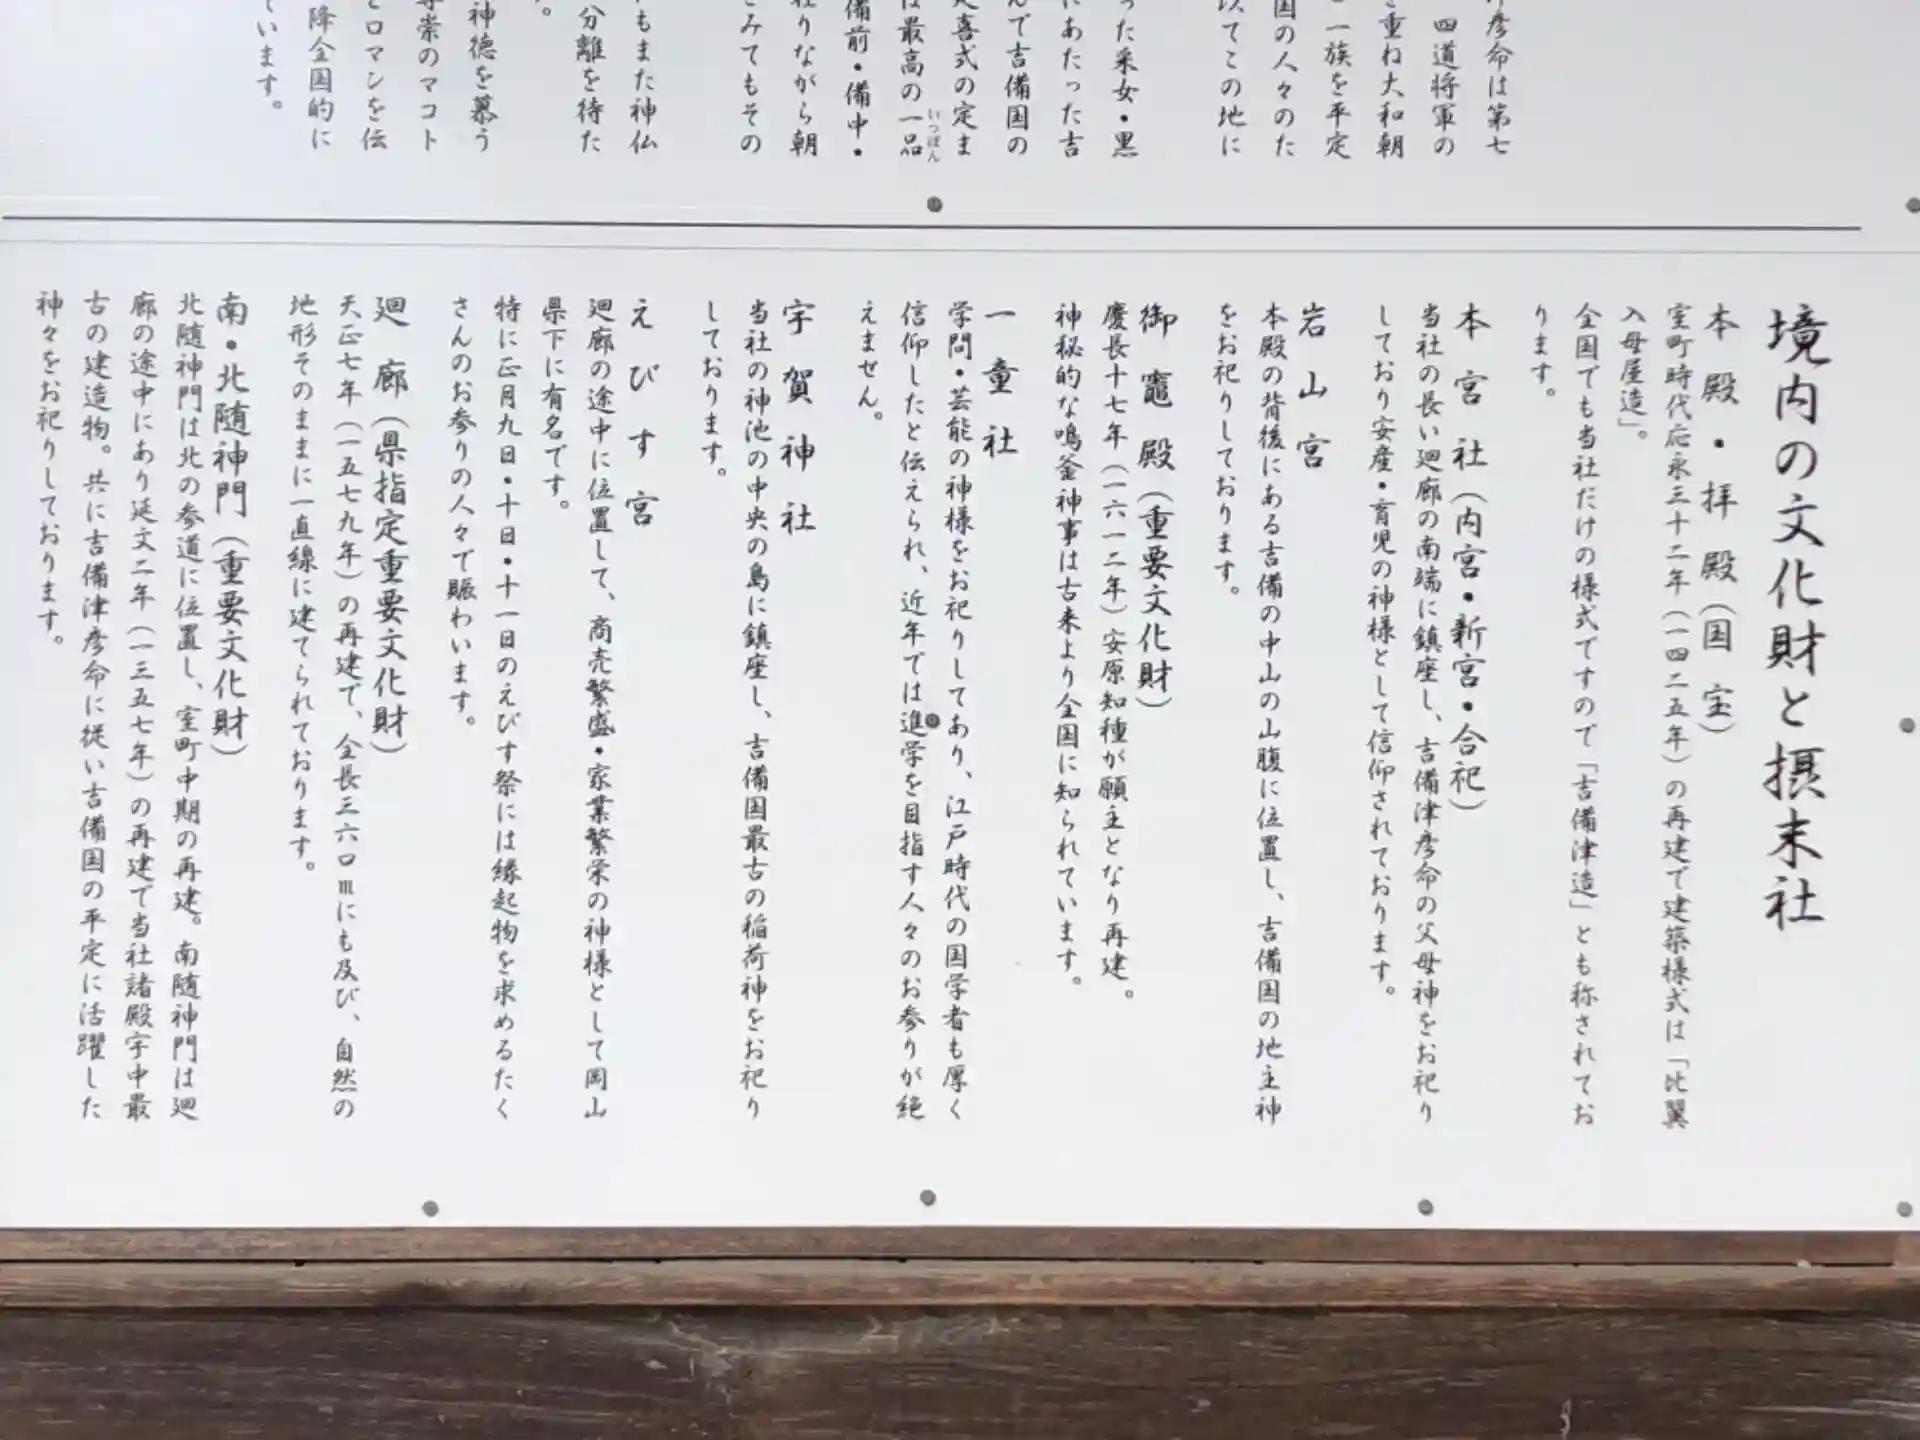 彦命は第七
四道将軍の
重ね大和朝
一族を平定
国の人々のた
以てこの地に
った采女・黒
にあたった吉
んで吉備国の
延喜式の定ま
は最高の一品
いっぽん
備前・備中・
祀りながら朝
みてもその
もまた神仏
分離を待た
。
神徳を慕う
尊崇のマコト
とロマンを伝
降全国的に
ています。
境内の文化財と摂末社
本殿・拝殿（国宝）
室町時代応永三十二年（一四二五年）の再建で建築様式は「比翼
入母屋造」。
全国でも当社だけの様式ですので「吉備津造」とも称されてお
ります。
本宮社（内宮・新宮・合祀）
当社の長い廻廊の南端に鎮座し、吉備津彦命の父母神をお祀り
しており安産・育児の神様として信仰されております。
岩山宮
本殿の背後にある吉備の中山の山腹に位置し、吉備国の地主神
をお祀りしております。
御竈殿（重要文化財）
慶長十七年（一六一二年）安原知種が願主となり再建。
神秘的な鳴釜神事は古来より全国に知られています。
一童社
学問・芸能の神様をお祀りしてあり、江戸時代の国学者も厚く
信仰したと伝えられ、近年では進学を目指す人々のお参りが絶
えません。
宇賀神社
当社の神池の中央の島に鎮座し、吉備国最古の稲荷神をお祀り
しております。
えびす宮
廻廊の途中に位置して、商売繁盛・家業繁栄の神様として岡山
県下に有名です。
特に正月九日・十日・十一日のえびす祭には縁起物を求めるたく
さんのお参りの人々で賑わいます。
廻廊（県指定重要文化財）
天正七年（一五七九年）の再建で、全長三六〇mにも及び、自然の
地形そのままに一直線に建てられております。
南・北随神門（重要文化財）
北随神門は北の参道に位置し、室町中期の再建。南随神門は廻
廊の途中にあり延文二年（一三五七年）の再建で当社諸殿宇中最
古の建造物。共に吉備津彦命に従い吉備国の平定に活躍した
神々をお祀りしております。